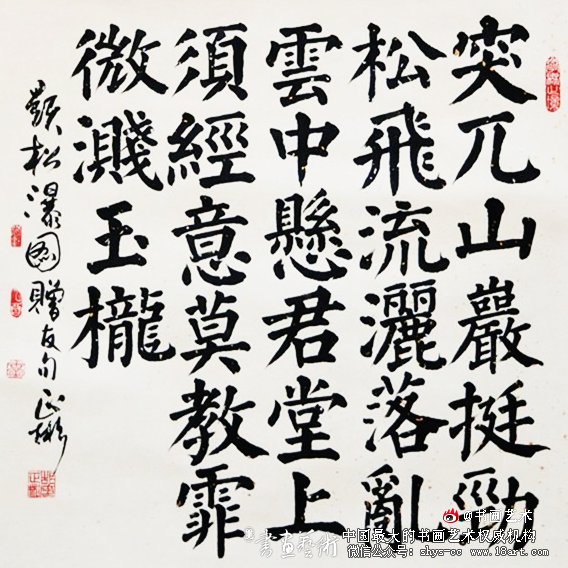 突兀山巖挺勁
松飛流灑落亂
雲中懸君堂上
須經意莫教霏
微濺玉櫳
題松瀑圖贈友句
@书画艺术
中国最大的书画艺术权威机构
微信公众号：shys-cc www.18art.com
書画藝術